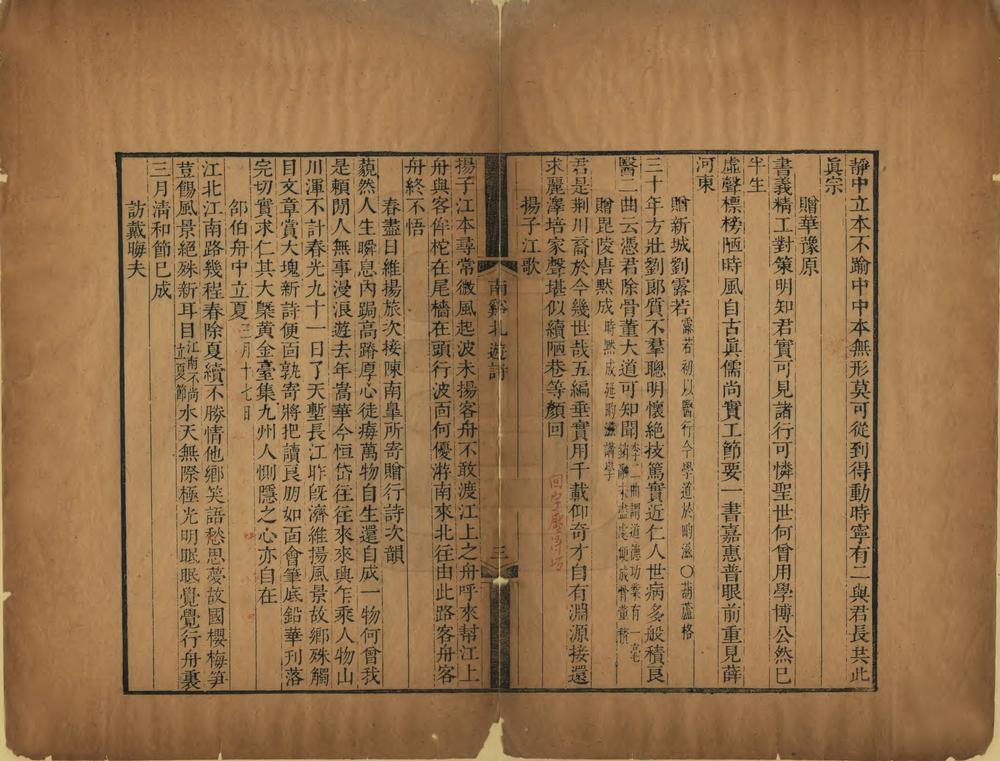 靜中立本不踰中中本無形莫可從到得動時寧有二與君長共此
眞宗
贈華豫原
書義精工對策明知君實可見諸行可憐聖世何曾用學博公然已
半生
虛聲標榜陋時風自古眞儒尚實工節要一書嘉惠普眼前重見薛
河東
贈新城劉露若露若初以醫行今學道於昫滋○葫蘆格
三十年方壯劉郞質不羣聰明懷絶技篤實近仁人世病多般積良
醫二曲云憑君除骨董大道可知聞李二曲謂道德功業有一毫鎔融未盡處便成骨董積
贈毘陵唐黙成時黙成延昫滋講學
君是荆川裔於今幾世哉五編垂實用千載仰奇才自有淵源接還
求麗澤培家聲堪似續陋巷等顏回
揚子江歌
南谿北遊詩
三
揚子江本尋常微風起波未揚客舟不敢渡江上之舟呼來幇江上
舟與客侔柁在尾檣在頭行波面何優游南來北往由此路客舟客
舟終不悟
春盡日維揚旅次接陳南皐所寄贈行詩次韻
藐然人生瞬息內跼高蹐厚心徒痗萬物自生還自成一物何曾我
是賴閒人無事漫浪遊去年嵩華今恒岱往往來來與乍乘人物山
川渾不計春光九十一日了天塹長江昨旣濟維揚風景故鄉殊觸
目文章賞大塊新詩便面孰寄將把讀良朋如面會筆底鉛華刊落
完切實求仁其大槩黄金臺集九州人惻隱之心亦自在
邵伯舟中立夏三月十七日
江北江南路幾程春除夏續不勝情他鄉笑語愁思夢故國櫻梅笋
荳餳風景絶殊新耳目江南不尚立夏節水天無際極光明眠眠覺覺行舟裏
三月淸和節已成
訪戴晦夫